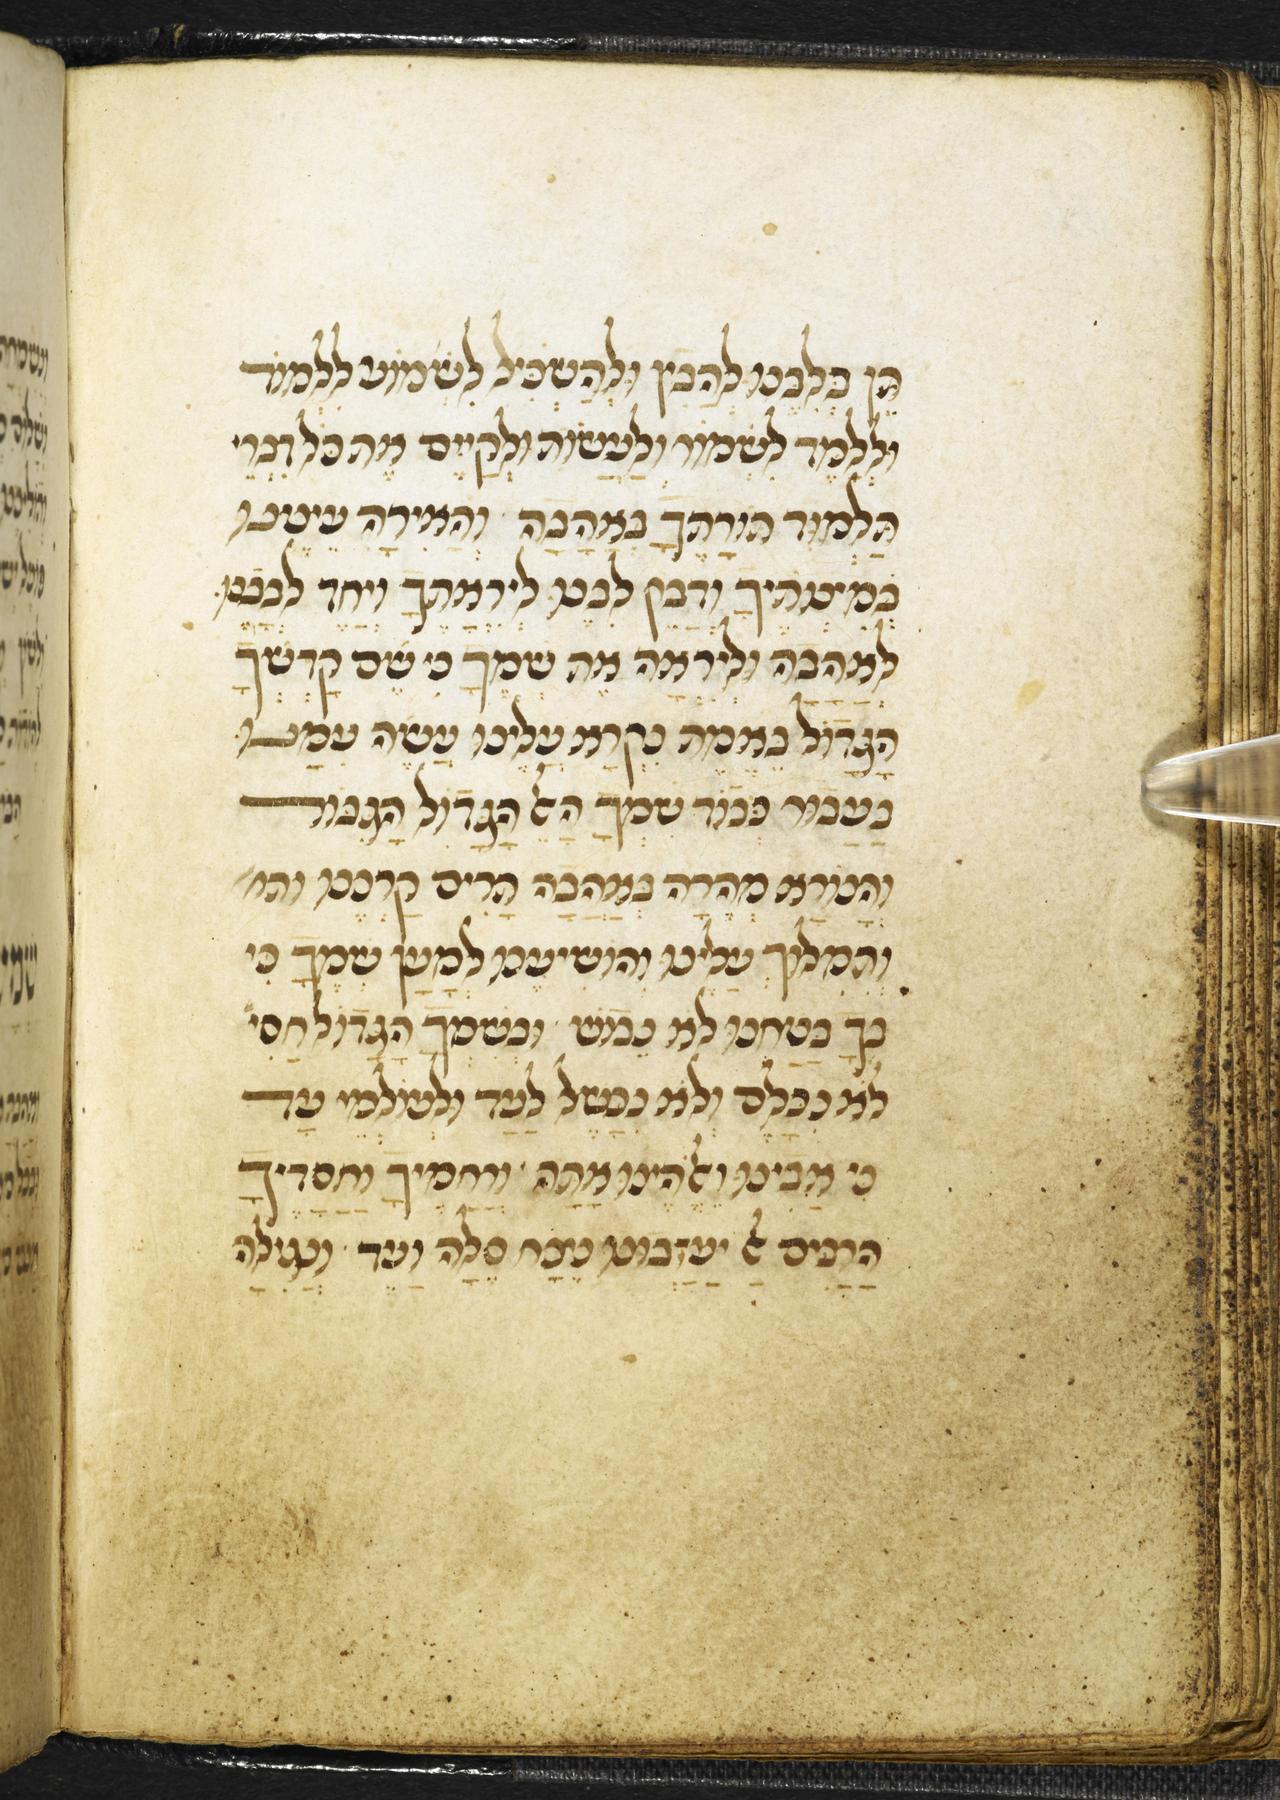 תן בלבנו להבין ולהשכיל לשמוע ללמוד
וללמד לשמור ולעשות ולקיים את כל דברי
תלמוד תורתך באהבה והאירה עינינו
במצותיך ודבק לבנו ליראתך ויחד לבבנו
לאהבה וליראה את שמך כי שם קדשך
הגדול באמת נקרא עלינו עשה עמנו
בעבור כבוד שמך האל הגדול הגבור
והנורא מהרה באהבה תרים קרננו ותו
ותמלוך עלינו והושיענו למען שמך כי
בך בטחנו לא נבוש ובשמך הגדול חסי
לא נכלם ולא נכשל לעד ולעולמי עד
כי אבינו ואלהינו אתה ורחמיך וחסדיך
הרבים אל יעזבונו נצח סלה ועד